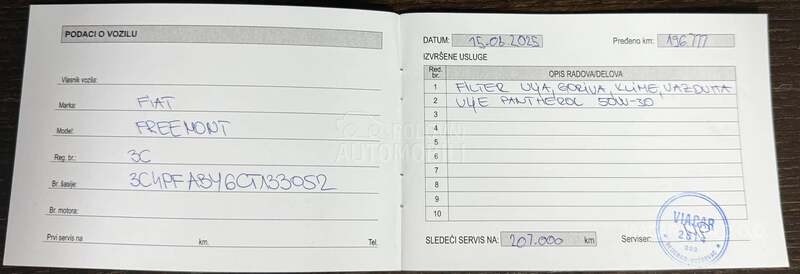 PODACI O VOZILU
Vlasnik vozila:
Marka: FIAT
Model: FREEMONT
Reg. br.: 3C
Br. šasije: 3C4PFABY6CT133052
Br. motora:
Prvi servis na km. Tel.
POLOVNI
AUTOMOBILI
DATUM: 15.06.2025 Pređeno km: 196777
IZVRŠENE USLUGE
Red. br. OPIS RADOVA/DELOVA
1 FILTER ULJA, GORIVA, KLIME, VAZDUHA
2 ULJE PANTHEROL 50W-30
3
4
5
6
7
8
9
10
SLEDEĆI SERVIS NA: 207.000 km Serviser:
VIAPAR